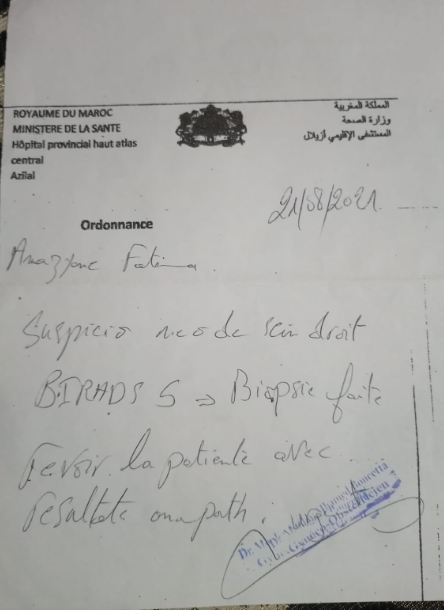 ROYAUME DU MAROC
MINISTERE DE LA SANTE
Hôpital provincial haut atlas
central
Azilal
المملكة المغربية
وزارة الصحة
المستشفى الإقليمي أزيلال
21/08/2021
Ordonnance
Fatima
Suspicio neo de sein droit
BIRADS 5 → Biopsie faite
revoir la patiente avec
resultats anapath.
Dr.